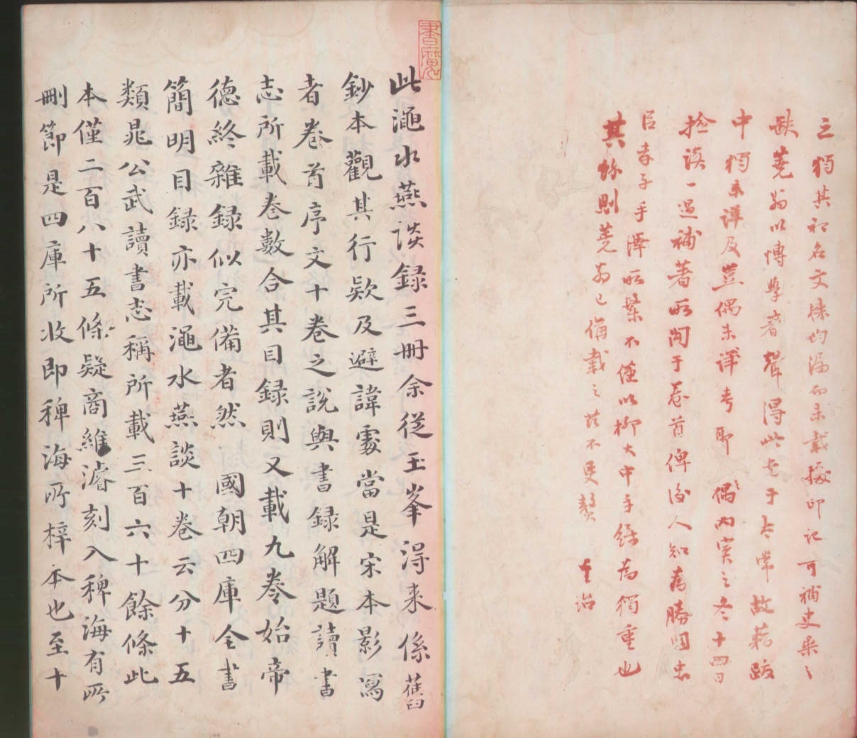 之獨其初名文均漏而未載據印記可補史乘之
缺蕘翁以博學著聲得此書于故藉跋
中獨未詳及豈偶未詳考耶偶之冬十四日
檢讀一過補著所聞于卷首俾後人知為勝國忠
臣孝子手澤所繫不僅以柳大中手錄為獨重也
其餘則蕘翁已備載之茲不更贅 治
書魔
此澠水燕談錄三冊余從玉峯得來係舊
鈔本觀其行欵及避諱處當是宋本影寫
者卷首序文十卷之說與書錄解題讀書
志所載卷數合其目錄則又載九卷始帝
德終雜錄似完備者然 國朝四庫全書
簡明目錄亦載澠水燕談十卷云分十五
類晁公武讀書志稱所載三百六十餘條此
本僅二百八十五條疑商維濬刻入稗海有所
刪節是四庫所收即稗海所梓本也至十